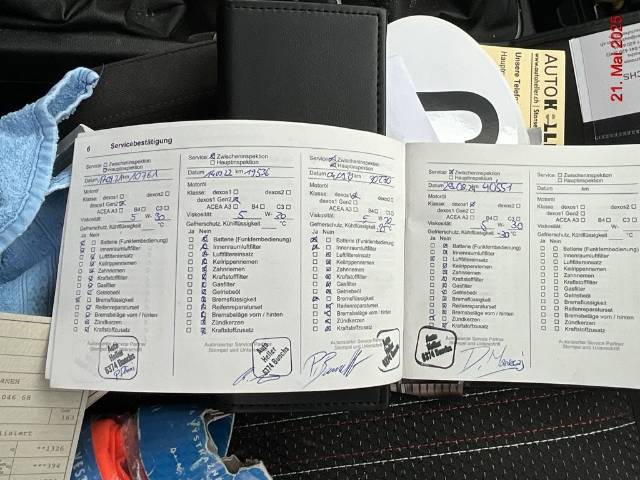 21. Mai 2025
AUTO
Unsere Telefon
www.autoheller.ch
6 Servicebestätigung
Service: Zwischeninspektion
Hauptinspektion
Datum km 10761
Motoröl
Klasse: dexos1 dexos2
dexos1 Gen2
ACEA A3 B4 C3
Viskosität: 5 W- 30
Gefrierschutz, Kühlflüssigkeit °C
Ja Nein
Batterie (Funkfernbedienung)
Innenraumluftfilter
Luftfiltereinsatz
Keilrippenriemen
Zahnriemen
Kraftstofffilter
Gasfilter
Getriebeöl
Bremsflüssigkeit
Reifenreparaturset
Bremsbeläge vorn / hinten
Zündkerzen
Kraftstoffzusatz
Autorisierter Service Partner
Stempel und Unterschrift
Auto
Heller
6374 Buochs
Service: Zwischeninspektion
Hauptinspektion
Datum km 19536
Motoröl
Klasse: dexos1 dexos2
dexos1 Gen2
ACEA A3 B4 C3
Viskosität: 5 W- 30
Gefrierschutz, Kühlflüssigkeit °C
Ja Nein
Batterie (Funkfernbedienung)
Innenraumluftfilter
Luftfiltereinsatz
Keilrippenriemen
Zahnriemen
Kraftstofffilter
Gasfilter
Getriebeöl
Bremsflüssigkeit
Reifenreparaturset
Bremsbeläge vorn / hinten
Zündkerzen
Kraftstoffzusatz
Autorisierter Service Partner
Stempel und Unterschrift
Auto
Heller
6374 Buochs
Service: Zwischeninspektion
Hauptinspektion
Datum km
Motoröl
Klasse: dexos1 dexos2
dexos1 Gen2
ACEA A3 B4 C3
Viskosität: 5 W-
Gefrierschutz, Kühlflüssigkeit °C
Ja Nein
Batterie (Funkfernbedienung)
Innenraumluftfilter
Luftfiltereinsatz
Keilrippenriemen
Zahnriemen
Kraftstofffilter
Gasfilter
Getriebeöl
Bremsflüssigkeit
Reifenreparaturset
Bremsbeläge vorn / hinten
Zündkerzen
Kraftstoffzusatz
Autorisierter Service Partner
Stempel und Unterschrift
Service: Zwischeninspektion
Hauptinspektion
Datum 29.08.24 km 40551
Motoröl
Klasse: dexos1 dexos2
dexos1 Gen2
ACEA A3 B4 C3
Viskosität: 5 W- 30
Gefrierschutz, Kühlflüssigkeit -30 °C
Ja Nein
Batterie (Funkfernbedienung)
Innenraumluftfilter
Luftfiltereinsatz
Keilrippenriemen
Zahnriemen
Kraftstofffilter
Gasfilter
Getriebeöl
Bremsflüssigkeit
Reifenreparaturset
Bremsbeläge vorn / hinten
Zündkerzen
Kraftstoffzusatz
Autorisierter Service Partner
Stempel und Unterschrift
Auto
Heller
6374 Buochs
Service: Zwischeninspektion
Hauptinspektion
Datum km
Motoröl
Klasse: dexos1 dexos2
dexos1 Gen2
ACEA A3 B4 C3
Viskosität: W-
Gefrierschutz, Kühlflüssigkeit °C
Ja Nein
Batterie (Funkfernbedienung)
Innenraumluftfilter
Luftfiltereinsatz
Keilrippenriemen
Zahnriemen
Kraftstofffilter
Gasfilter
Getriebeöl
Bremsflüssigkeit
Reifenreparaturset
Bremsbeläge vorn / hinten
Zündkerzen
Kraftstoffzusatz
Autorisierter Service Partner
Stempel und Unterschrift
046.68
163
**1326
**394